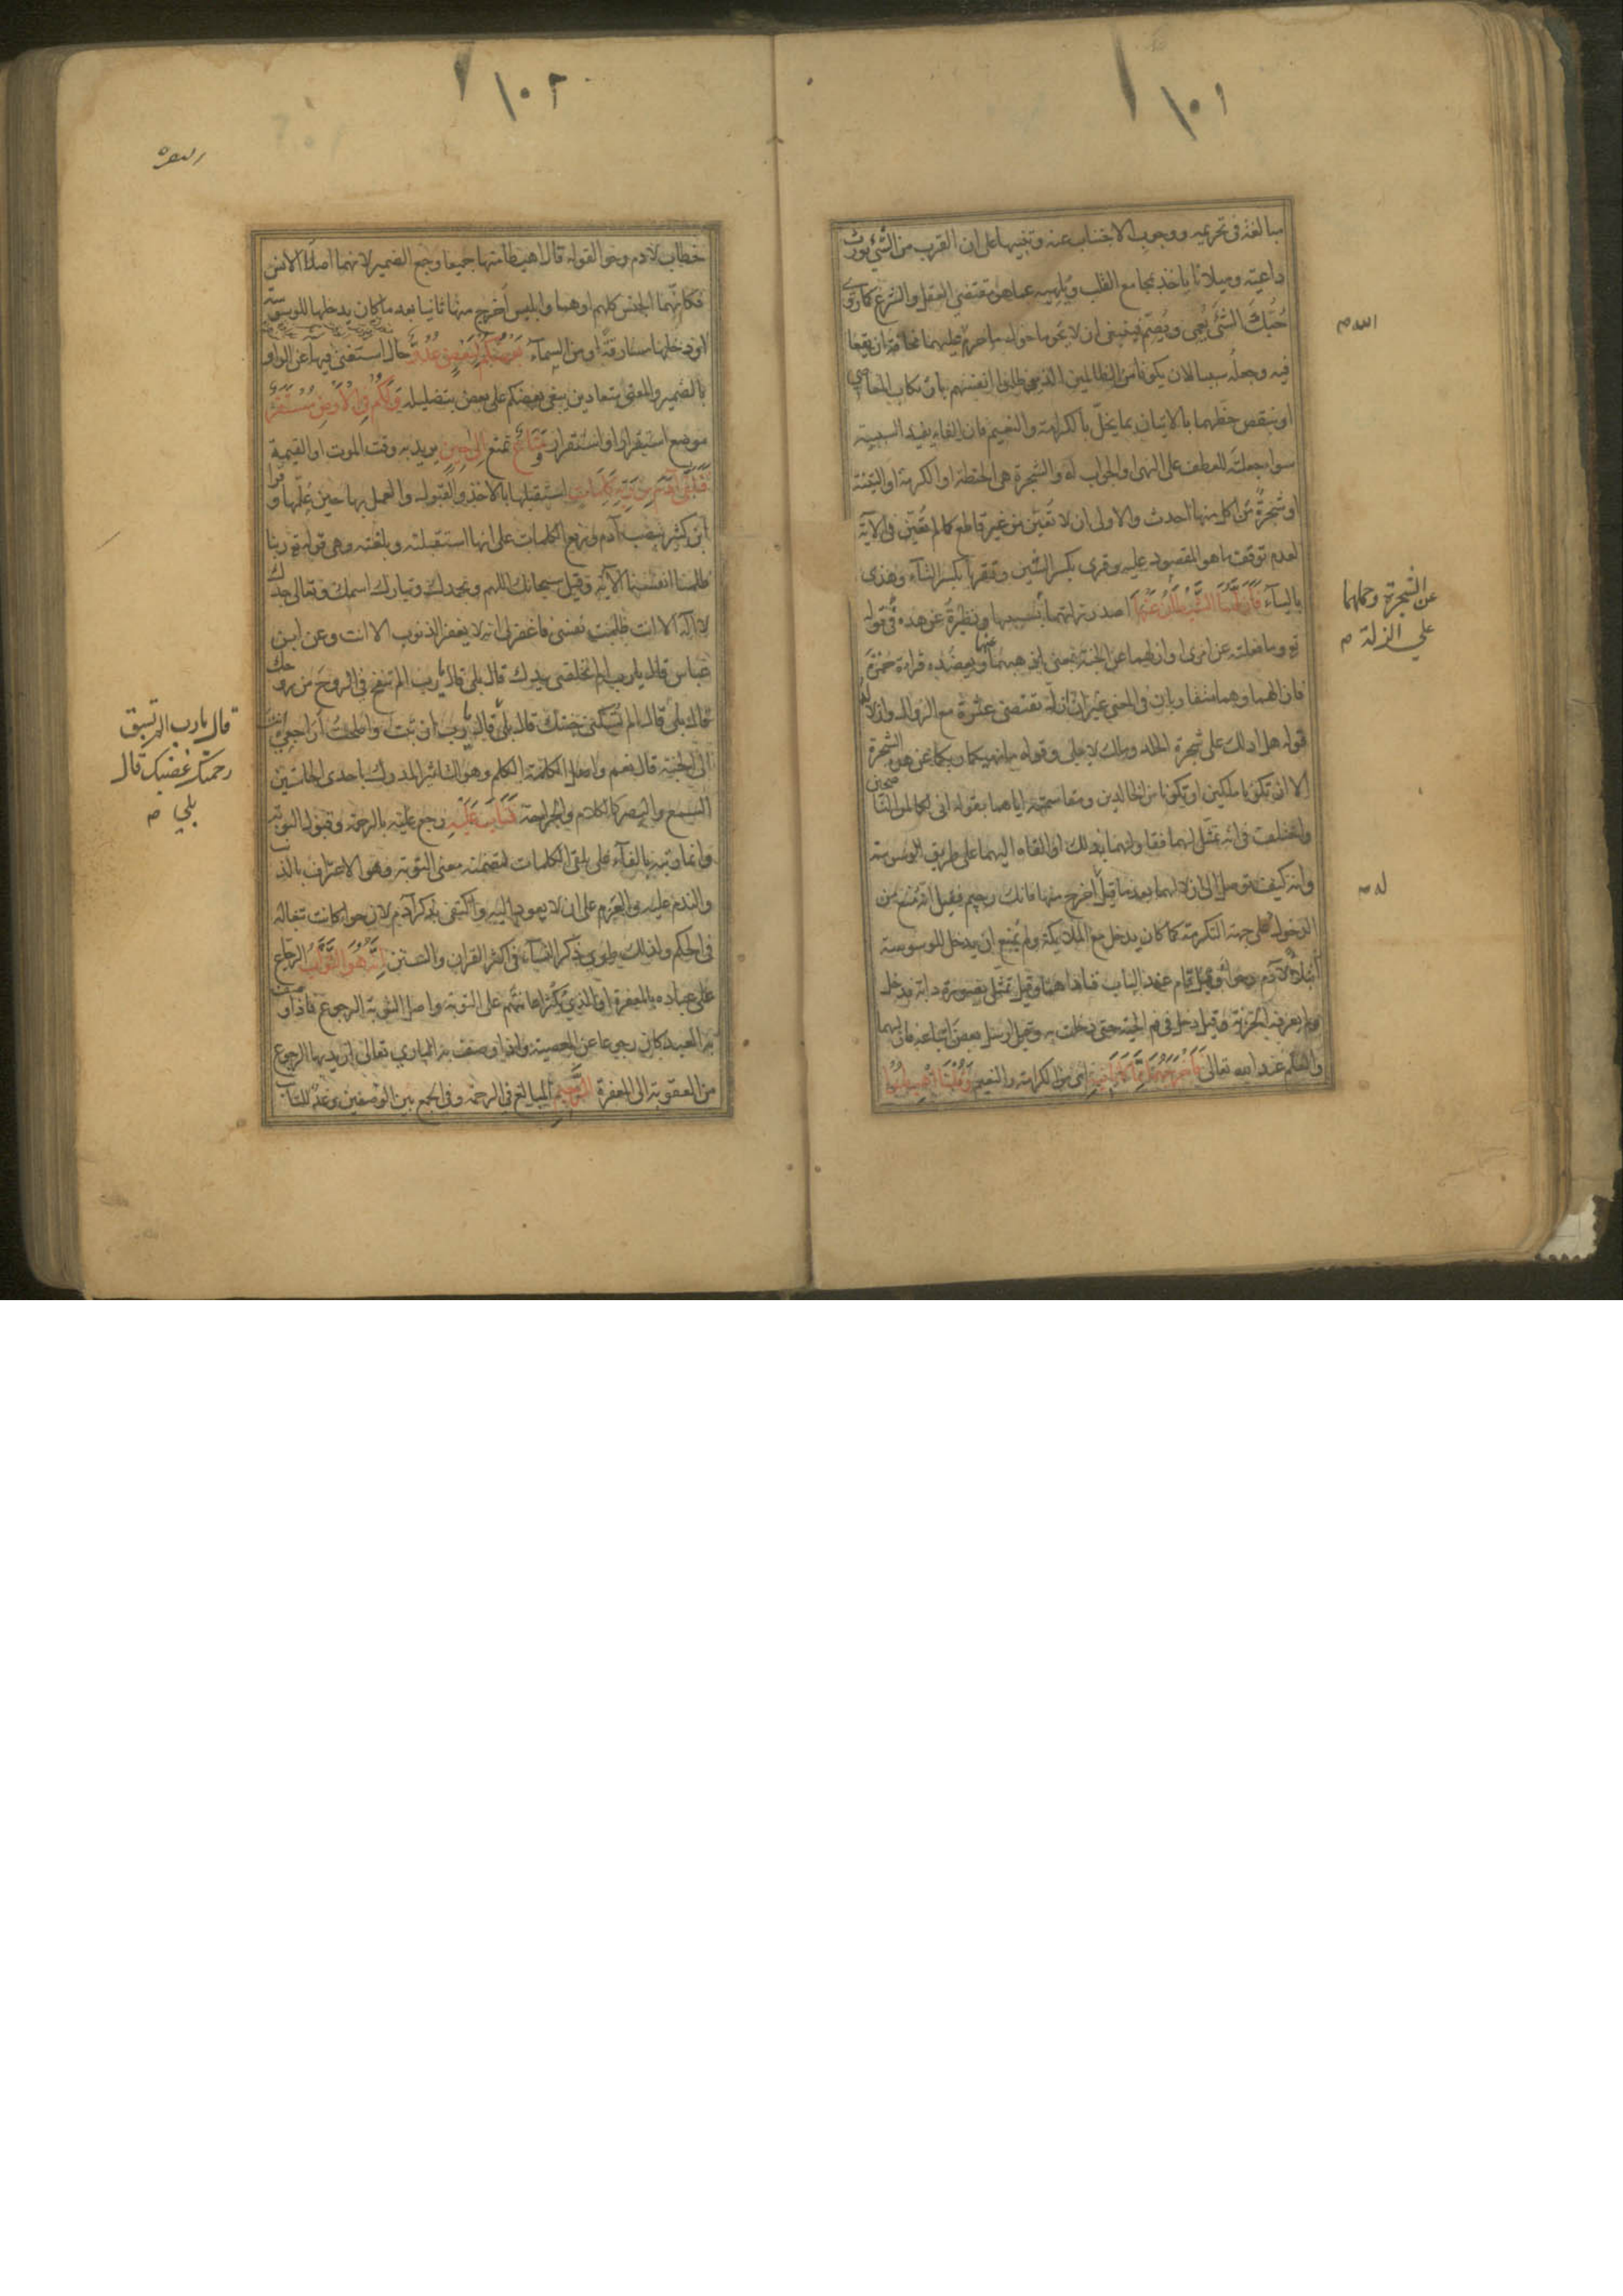 ١٠١
مبالغة فى تحريمه ووجوب الاجتناب عنه وتنبيها على ان القرب من الشئ يورث
داعية وميلانا ياخذ بمجامع القلب ويلهيه عما هو مقتضى العقل والشرع كما روى
حبك الشئ يعمى ويصم فينبغى ان لا يحوما حول ما حرم عليهما مخافة ان يقعا
الله م
فيه وجعله سببا لان يكونا من الظالمين الذين ظلموا انفسهم بارتكاب المعاصى
او بنقص حظهما بالاتيان بما يخل بالكرامة والنعيم فان الفاء يفيد السببية
سوا جعلته للعطف على النهى او الجواب له والشجرة هى الحنطة او الكرمة او التينة
او شجرة من اكل منها احدث والاولى ان لا تعين من غير قاطع كما لم تعين فى الآية
لعدم توقف ما هو المقصود عليه وقرى بكسر الشين وتقربا بكسر التاء وهذى
بالياء فَأَزَلَّهُمَا الشَّيْطَانُ عَنْهَا اصدر زلتهما بسببها ونظيره عن هذه فى قوله
عن الشجرة وحملهما
على الزلة م
تع وما فعلته عن امرى او ازلهما عن الجنة بمعنى اذهبهما عنها ويعضده قراءة حمزة
فازالهما وهما متقاربان فى المعنى غير ان ازل يقتضى عثرة مع الزوال وازلاله
قوله هل ادلك على شجرة الخلد وملك لا يبلى وقوله ما نهيكما ربكما عن هذه الشجرة
الا ان تكونا ملكين او تكونا من الخالدين ومقاسمته اياهما بقوله انى لكما لمن الناصحين
واختلف فى انه تمثل لهما فقاولهما بذلك او القاه اليهما على طريق الوسوسة
وانه كيف توصل الى ازلالهما بعد ما قيل اخرج منها فانك رجيم فقيل انه منع من
له م
الدخول على جهة التكرمة كما كان يدخل مع الملايكة ولم يمنع ان يدخل للوسوسة
ابتلاء لآدم وحوا وقيل قام عند الباب فناداهما وقيل تمثل بصورة دابة فدخل
ولم يعرفه الخزنة وقيل دخل فى فم الحية حتى دخلت به وقيل ارسل بعض اتباعه فازلهما
والعلم عند الله تعالى فَأَخْرَجَهُمَا مِمَّا كَانَا فِيهِ اى من الكرامة والنعيم وَقُلْنَا اهْبِطُوا
١٠٢
البقرة
خطاب لآدم وحوا لقوله قال اهبطا منها جميعا وجمع الضمير لانهما اصلا الانس
فكانهما الجنس كلهم او هما وابليس اخرج منها ثانيا بعد ما كان يدخلها للوسوسة
او دخلها مسارقة او من السماء بَعْضُكُمْ لِبَعْضٍ عَدُوٌّ حال استغنى فيها عن الواو
بالضمير والمعنى متعادين يبغى بعضكم على بعض بتضليله وَلَكُمْ فِي الْأَرْضِ مُسْتَقَرٌّ
موضع استقرار او استقرار وَمَتَاعٌ تمتع إِلَى حِينٍ يريد به وقت الموت او القيمة
فَتَلَقَّى آدَمُ مِنْ رَبِّهِ كَلِمَاتٍ استقبلها بالاخذ والقبول والعمل بها حين علمها وقرا
ابن كثير بنصب آدم ورفع الكلمات على انها استقبلته وبلغته وهى قوله تع ربنا
ظلمنا انفسنا الآية وقيل سبحانك اللهم وبحمدك وتبارك اسمك وتعالى جدك
لا اله الا انت ظلمت نفسى فاغفر لى انه لا يغفر الذنوب الا انت وعن ابن
عباس قال يا رب الم تخلقنى بيدك قال بلى قال يا رب الم تنفخ فى الروح من روحك
قال بلى قال الم تسكنى جنتك قال بلى قال يا رب ان تبت واصلحت اراجعى انت
قال يا رب الم تسبق
رحمتك غضبك قال
بلى م
الى الجنة قال نعم واصل الكلمة الكلم وهو التاثير المدرك باحدى الحاستين
السمع والبصر كالكلام والجراحة فَتَابَ عَلَيْهِ رجع عليه بالرحمة وقبول التوبة
وانما رتبه بالفاء على تلقى الكلمات لتضمنه معنى التوبة وهو الاعتراف بالذنب
والندم عليه والعزم على ان لا يعود اليه واكتفى بذكر آدم لان حوا كانت تبعا له
فى الحكم ولذلك طوى ذكر النساء فى اكثر القران والسنن إِنَّهُ هُوَ التَّوَّابُ الرجاع
على عباده بالمغفرة او الذى يكثر اعانتهم على التوبة واصل التوبة الرجوع فاذا وصف
به العبد كان رجوعا عن المعصية واذا وصف به البارى تعالى اريد بها الرجوع
من العقوبة الى المغفرة الرَّحِيمُ المبالغ فى الرحمة وفى الجمع بين الوصفين وعد للتائب